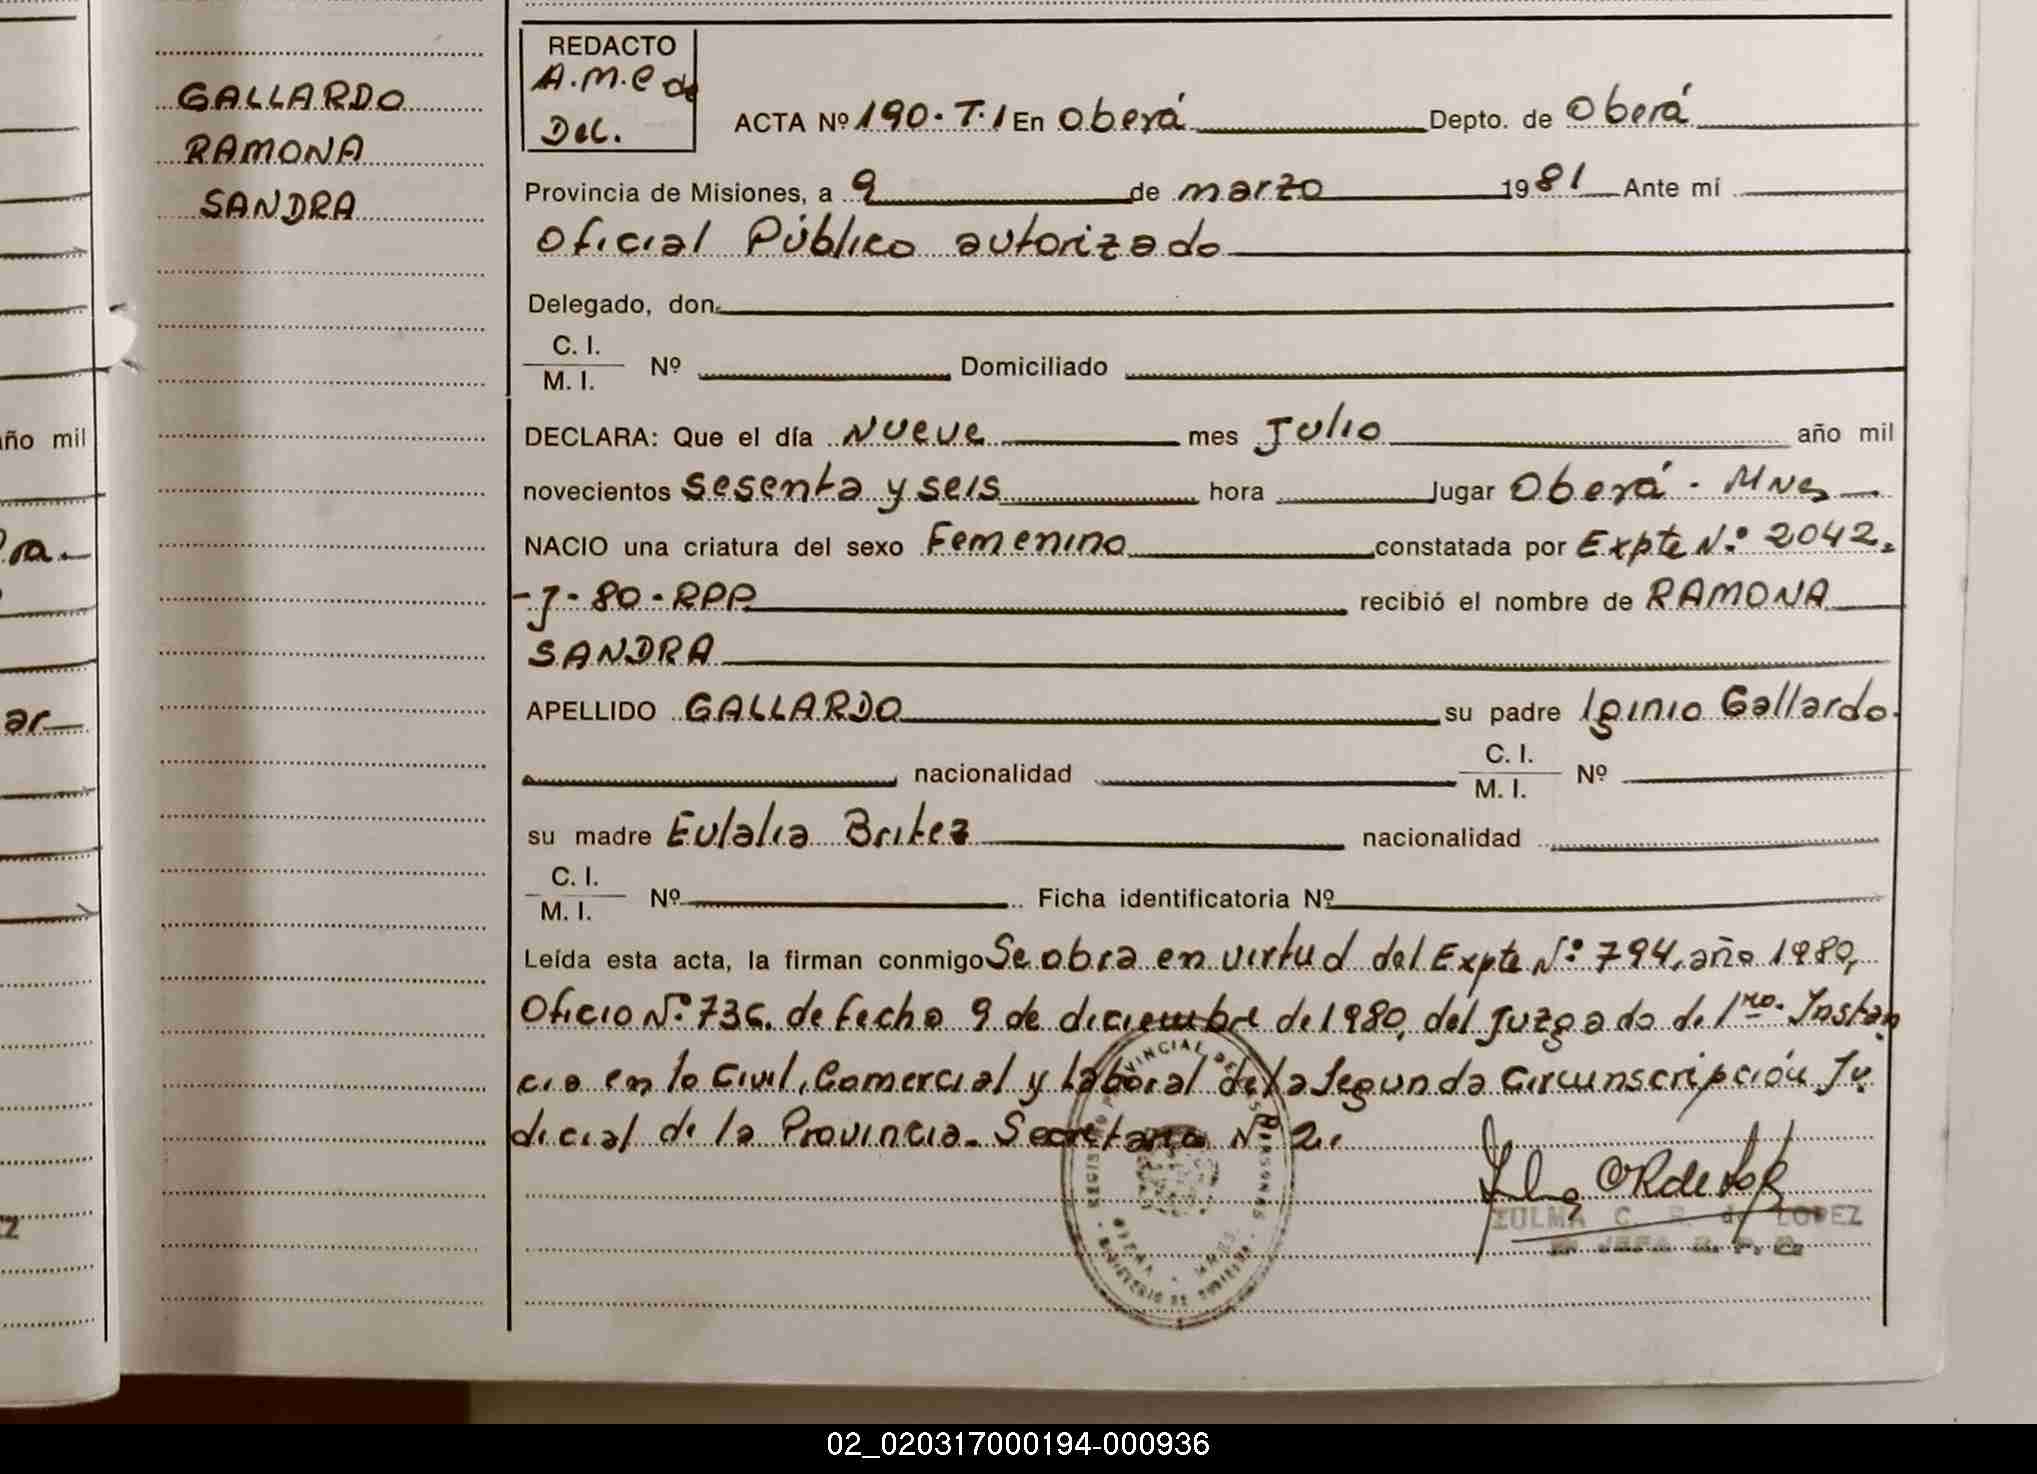 GALLARDO
RAMONA
SANDRA
año mil
ra.
ar
REDACTO
A.M.C de
Del.
ACTA Nº 190. T.1 En Oberá Depto. de Oberá
Provincia de Misiones, a 9 de marzo 1981 Ante mí
Oficial Público autorizado
Delegado, don
C. I.
M. I. Nº Domiciliado
DECLARA: Que el día Nueve mes Julio año mil
novecientos sesenta y seis hora lugar Oberá - Mnes
NACIO una criatura del sexo Femenino constatada por Expte N.º 2042.
-J-80-RPP. recibió el nombre de RAMONA
SANDRA
APELLIDO GALLARDO su padre Iginio Gallardo.
nacionalidad C. I.
M. I. Nº
su madre Eulalia Britez nacionalidad
C. I.
M. I. Nº Ficha identificatoria Nº
Leída esta acta, la firman conmigo Se obra en virtud del Expte N.º 794, año 1980,
Oficio N.º 736. de fecha 9 de diciembre de 1980, del Juzgado de 1ra. Instan
cia en lo Civil, Comercial y Laboral de la Segunda Circunscripción Ju
dicial de la Provincia. Secretaria Nº 2.
REGISTRO PROVINCIAL DE LAS PERSONAS
MINISTERIO DE GOBIERNO
ZULMA C. R. d LOPEZ
JEFA R. P. P.
02_020317000194-000936